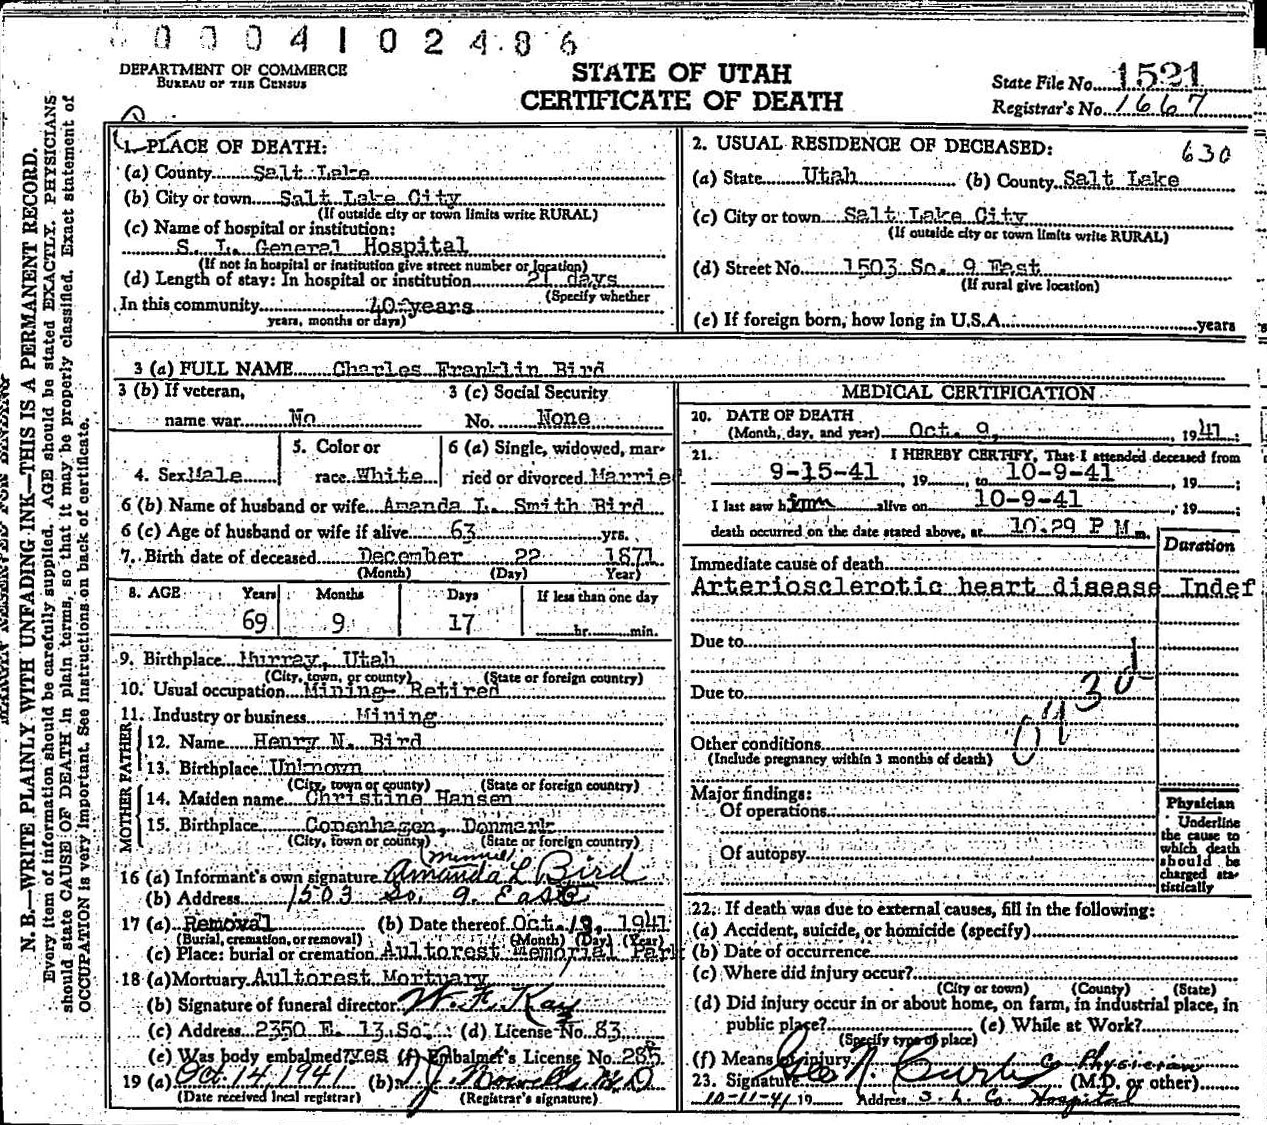 0004102486
DEPARTMENT OF COMMERCE
BUREAU OF THE CENSUS
STATE OF UTAH
CERTIFICATE OF DEATH
State File No. 1521
Registrar's No. 1667
N. B.—WRITE PLAINLY WITH UNFADING INK—THIS IS A PERMANENT RECORD.
Every item of information should be carefully supplied. AGE should be stated EXACTLY. PHYSICIANS
should state CAUSE OF DEATH in plain terms, so that it may be properly classified. Exact statement of
OCCUPATION is very important. See instructions on back of certificate.
1. PLACE OF DEATH:
(a) County Salt Lake
(b) City or town Salt Lake City
(If outside city or town limits write RURAL)
(c) Name of hospital or institution:
S. L. General Hospital
(If not in hospital or institution give street number or location)
(d) Length of stay: In hospital or institution 21 days
(Specify whether
In this community 40 years
years, months or days)
2. USUAL RESIDENCE OF DECEASED: 630
(a) State Utah (b) County Salt Lake
(c) City or town Salt Lake City
(If outside city or town limits write RURAL)
(d) Street No. 1503 So. 9 East
(If rural give location)
(e) If foreign born, how long in U.S.A. years
3 (a) FULL NAME Charles Franklin Bird
3 (b) If veteran, 3 (c) Social Security
name war No No. None
4. Sex Male 5. Color or race White 6 (a) Single, widowed, married or divorced Married
6 (b) Name of husband or wife Amanda L. Smith Bird
6 (c) Age of husband or wife if alive 63 yrs.
7. Birth date of deceased December 22 1871
(Month) (Day) Year)
8. AGE Years Months Days If less than one day
69 9 17 hr. min.
9. Birthplace Murray, Utah
(City, town, or county) (State or foreign country)
10. Usual occupation Mining- Retired
11. Industry or business Mining
FATHER
12. Name Henry N. Bird
13. Birthplace Unknown
(City, town or county) (State or foreign country)
MOTHER
14. Maiden name Christine Hansen
15. Birthplace Copenhagen, Denmark
(City, town or county) (State or foreign country)
(Minnie)
16 (a) Informant's own signature Amanda L Bird
(b) Address 1503 So. 9. East
17 (a) Removal (b) Date thereof Oct. 13, 1941
(Burial, cremation, or removal) (Month) (Day) (Year)
(c) Place: burial or cremation Aultorest Memorial Park
18 (a) Mortuary Aultorest Mortuary
(b) Signature of funeral director W. F. Kay
(c) Address 2350 E. 13 So. (d) License No. 83
(e) Was body embalmed? yes (f) Embalmer's License No. 285
19 (a) Oct 14, 1941 (b)
(Date received local registrar) (Registrar's signature)
MEDICAL CERTIFICATION
20. DATE OF DEATH
(Month, day, and year) Oct. 9, , 1941
21. I HEREBY CERTIFY, That I attended deceased from
9-15-41 , 19 , to 10-9-41 , 19 ;
I last saw him alive on 10-9-41 , 19 ;
death occurred on the date stated above, at 10.29 P M m.
Duration
Immediate cause of death
Arteriosclerotic heart disease Indef
Due to
Due to
Other conditions
(Include pregnancy within 3 months of death)
Major findings:
Of operations
Of autopsy
Physician
Underline
the cause to
which death
should be
charged sta-
tistically
22. If death was due to external causes, fill in the following:
(a) Accident, suicide, or homicide (specify)
(b) Date of occurrence
(c) Where did injury occur?
(City or town) (County) (State)
(d) Did injury occur in or about home, on farm, in industrial place, in
public place? (e) While at Work?
(Specify type of place)
(f) Means of injury Co Physician
23. Signature Geo N. Curtis (M.D. or other)
10-11-41 19 Address S. L. Co. Hospital